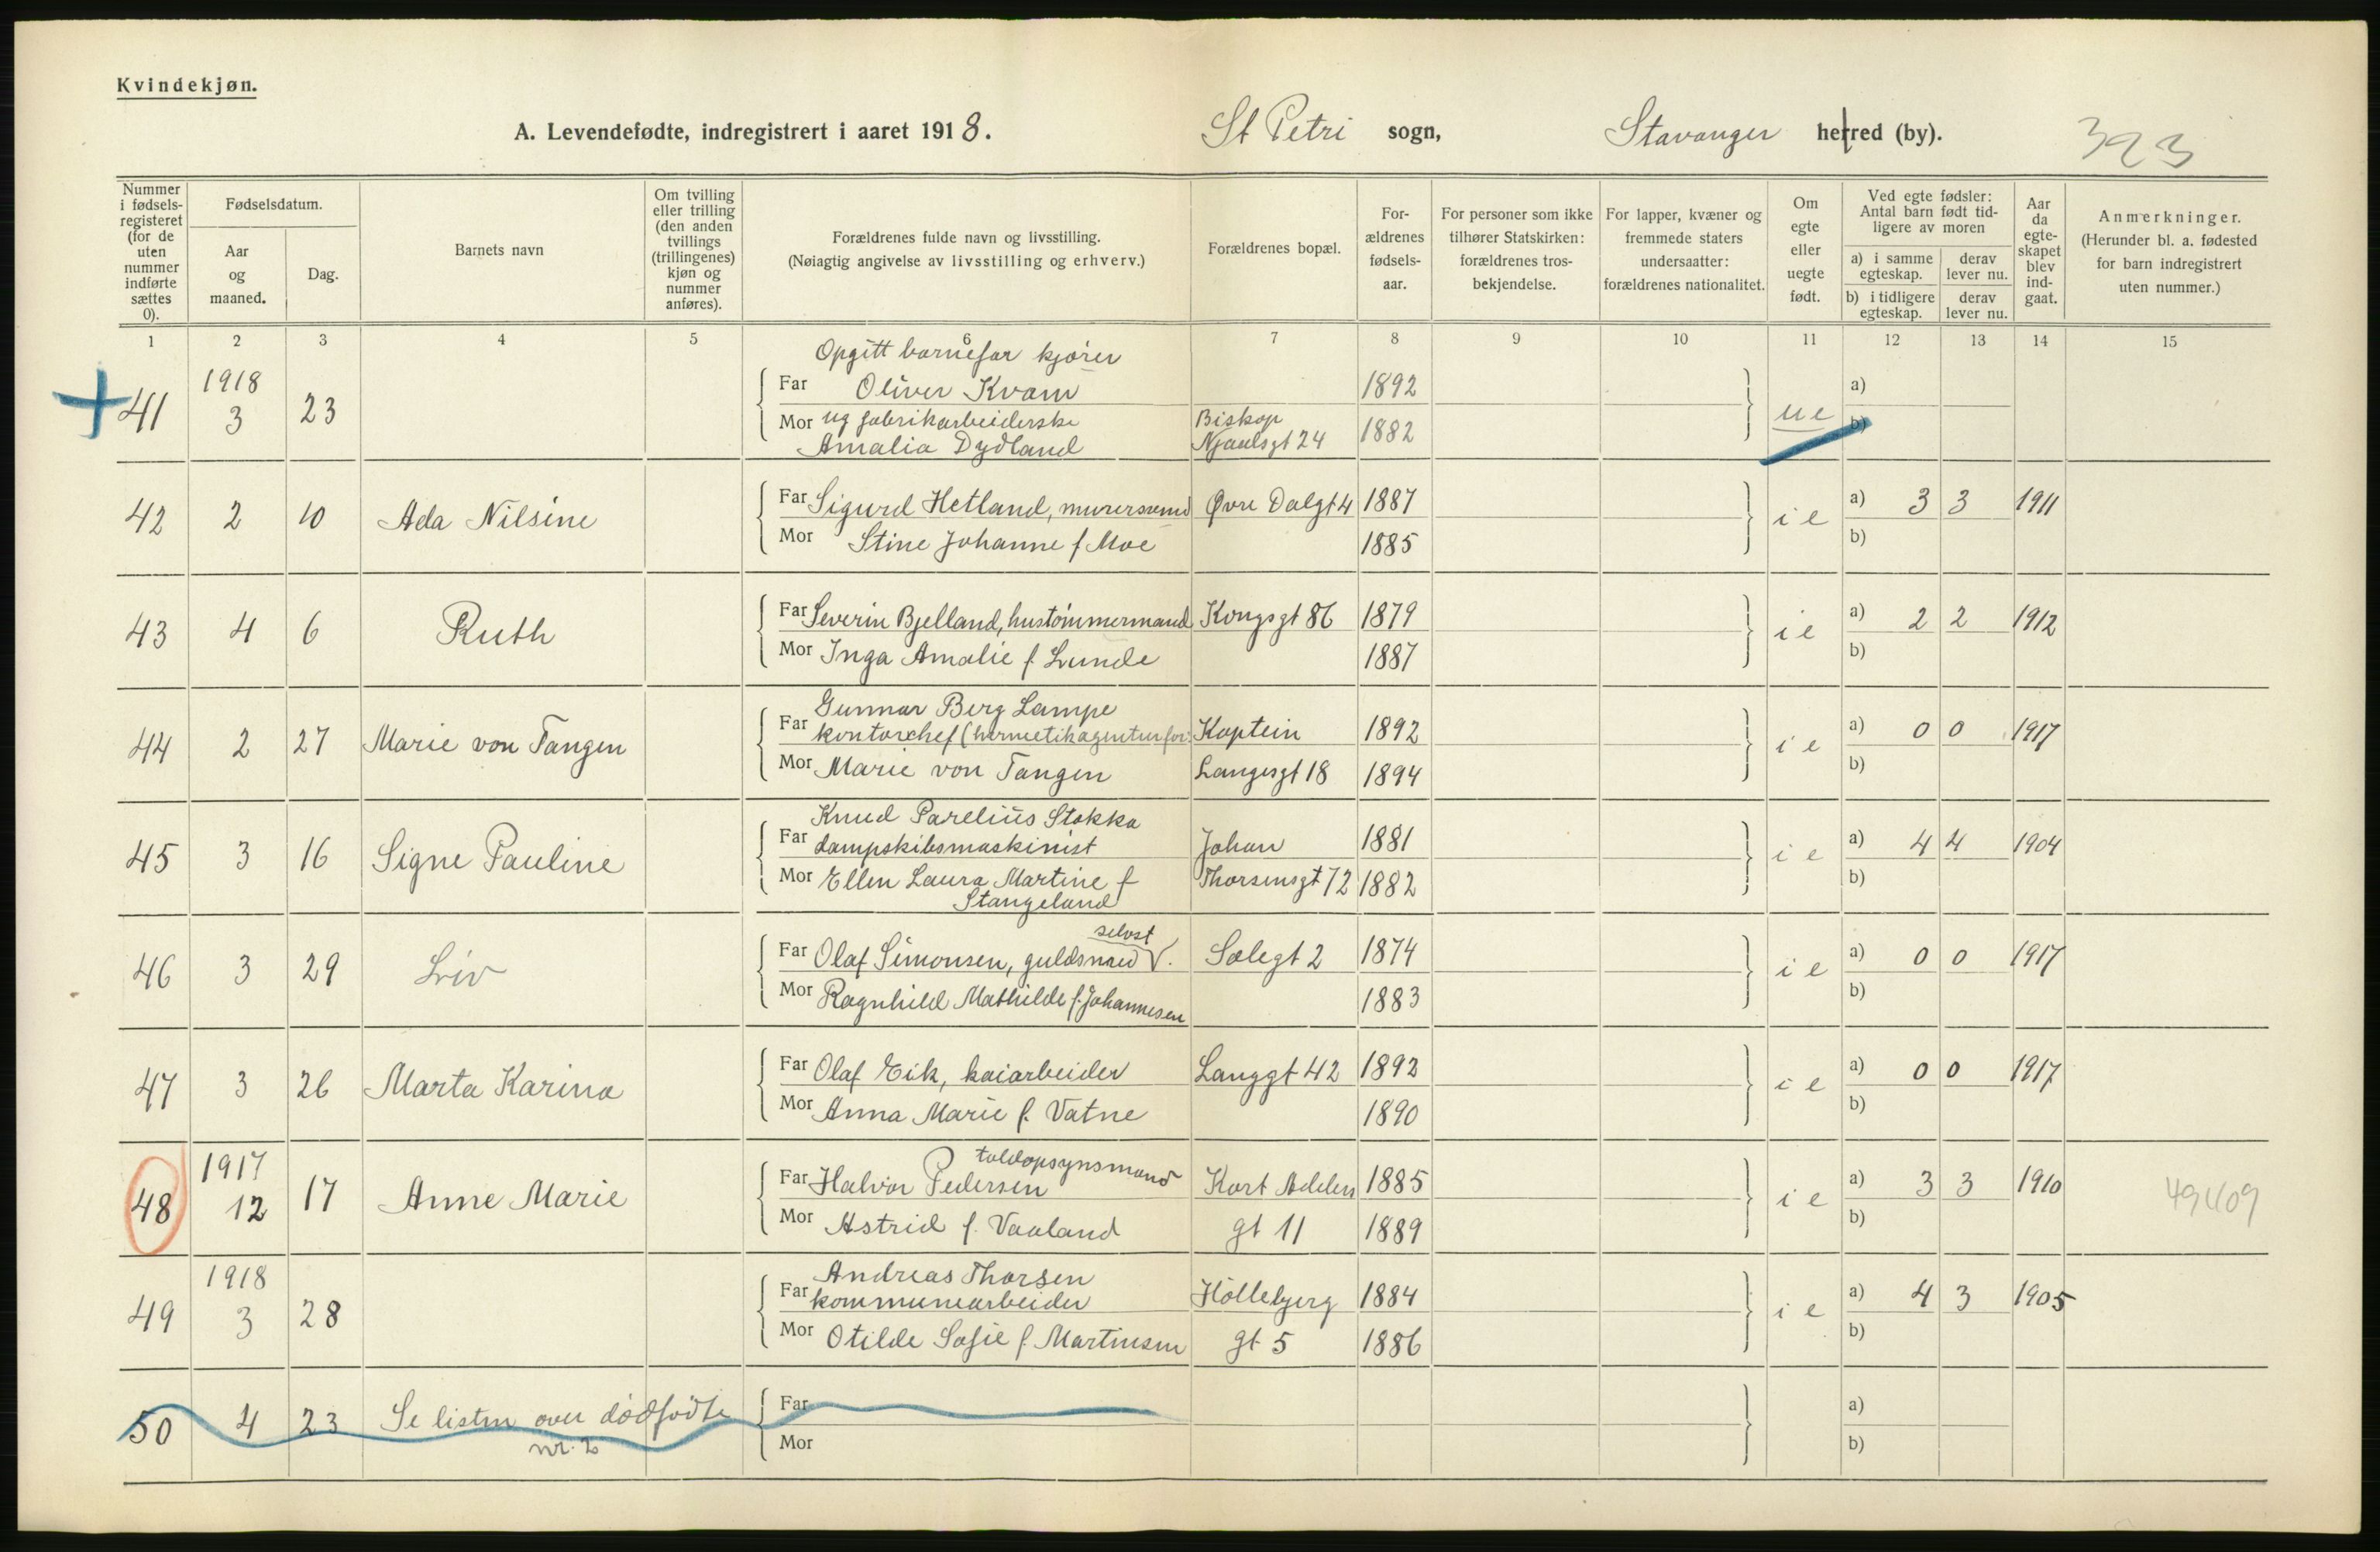 Kvindekjøn.
A. Levendefødte, indregistrert i aaret 1918. St Petri sogn, Stavanger herred (by). 323
Nummer i fødsels-registeret (for de uten nummer indførte sættes 0).
Fødselsdatum.
Aar og maaned.
Dag.
Barnets navn
Om tvilling eller trilling (den anden tvillings (trillingenes) kjøn og nummer anføres).
Forældrenes fulde navn og livsstilling.
(Nøiagtig angivelse av livsstilling og erhverv.)
Forældrenes bopæl.
For-ældrenes fødsels-aar.
For personer som ikke tilhører Statskirken: forældrenes tros-bekjendelse.
For lapper, kvæner og fremmede staters undersaatter: forældrenes nationalitet.
Om egte eller uegte født.
Ved egte fødsler: Antal barn født tid-ligere av moren
a) i samme egteskap.
derav lever nu.
b) i tidligere egteskap.
derav lever nu.
Aar da egte-skapet blev ind-gaat.
Anmerkninger.
(Herunder bl. a. fødested for barn indregistrert uten nummer.)
1 2 3 4 5 6 7 8 9 10 11 12 13 14 15
Opgitt barnefar kjører
41 1918 3 23 Far Oliver Kvam 1892 ue a)
Mor ug fabrikarbeiderske Biskop
Amalia Dydland Njaulsgt 24 1882 b)
42 2 10 Ada Nilsine Far Sigurd Hetland, murersvend Øvre Dalgt 4 1887 i e a) 3 3 1911
Mor Stine Johanne f Moe 1885 b)
43 4 6 Ruth Far Severin Bjelland, hustømmermand Kongsgt 86 1879 i e a) 2 2 1912
Mor Inga Amalie f. Lunde 1887 b)
Gunnar Berg Lampe
44 2 27 Marie von Tangen Far kontorchef (hermetikagenturfor. Kaptein 1892 i e a) 0 0 1917
Mor Marie von Tangen Langesgt 18 1894 b)
Knud Parelius Stokka
45 3 16 Signe Pauline Far dampskibsmaskinist Johan 1881 i e a) 4 4 1904
Mor Ellen Laura Martine f Thorsensgt 72 1882 b)
Stangeland
selvst
46 3 29 Liv Far Olaf Simonsen, guldsmed V. Solegt 2 1874 i e a) 0 0 1917
Mor Ragnhild Mathilde f. Johannesen 1883 b)
47 3 26 Marta Karina Far Olaf Eik, kaiarbeider Langgt 42 1892 i e a) 0 0 1917
Mor Anna Marie f. Vatne 1890 b)
toldopsynsmand
48 1917 12 17 Anne Marie Far Halvor Pedersen Kort Adelers 1885 i e a) 3 3 1910 49409
Mor Astrid f. Vaaland gt 11 1889 b)
Andreas Thorsen
49 1918 3 28 Far kommunearbeider Höllebjerg 1884 i e a) 4 3 1905
Mor Otilde Sofie f. Martinsen gt 5 1886 b)
50 4 23 Se listen over dødfødte Far a)
nr. 2 Mor b)